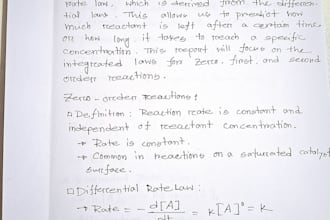 rate law, which is derived from the differen-
tial laws. This allows us to predict how
much reactant is left after a certain time
or how long it takes to reach a specific
concentration. This report will focus on the
integrated laws for zero, first, and second
order reactions.
Zero-order reactions:
□ Definition: Reaction rate is constant and
independent of reactant concentration.
→ Rate is constant.
→ Common in reactions on a saturated catalyst
surface.
□ Differential Rate Law:
→ Rate = - d[A]/dt = k[A]⁰ = k